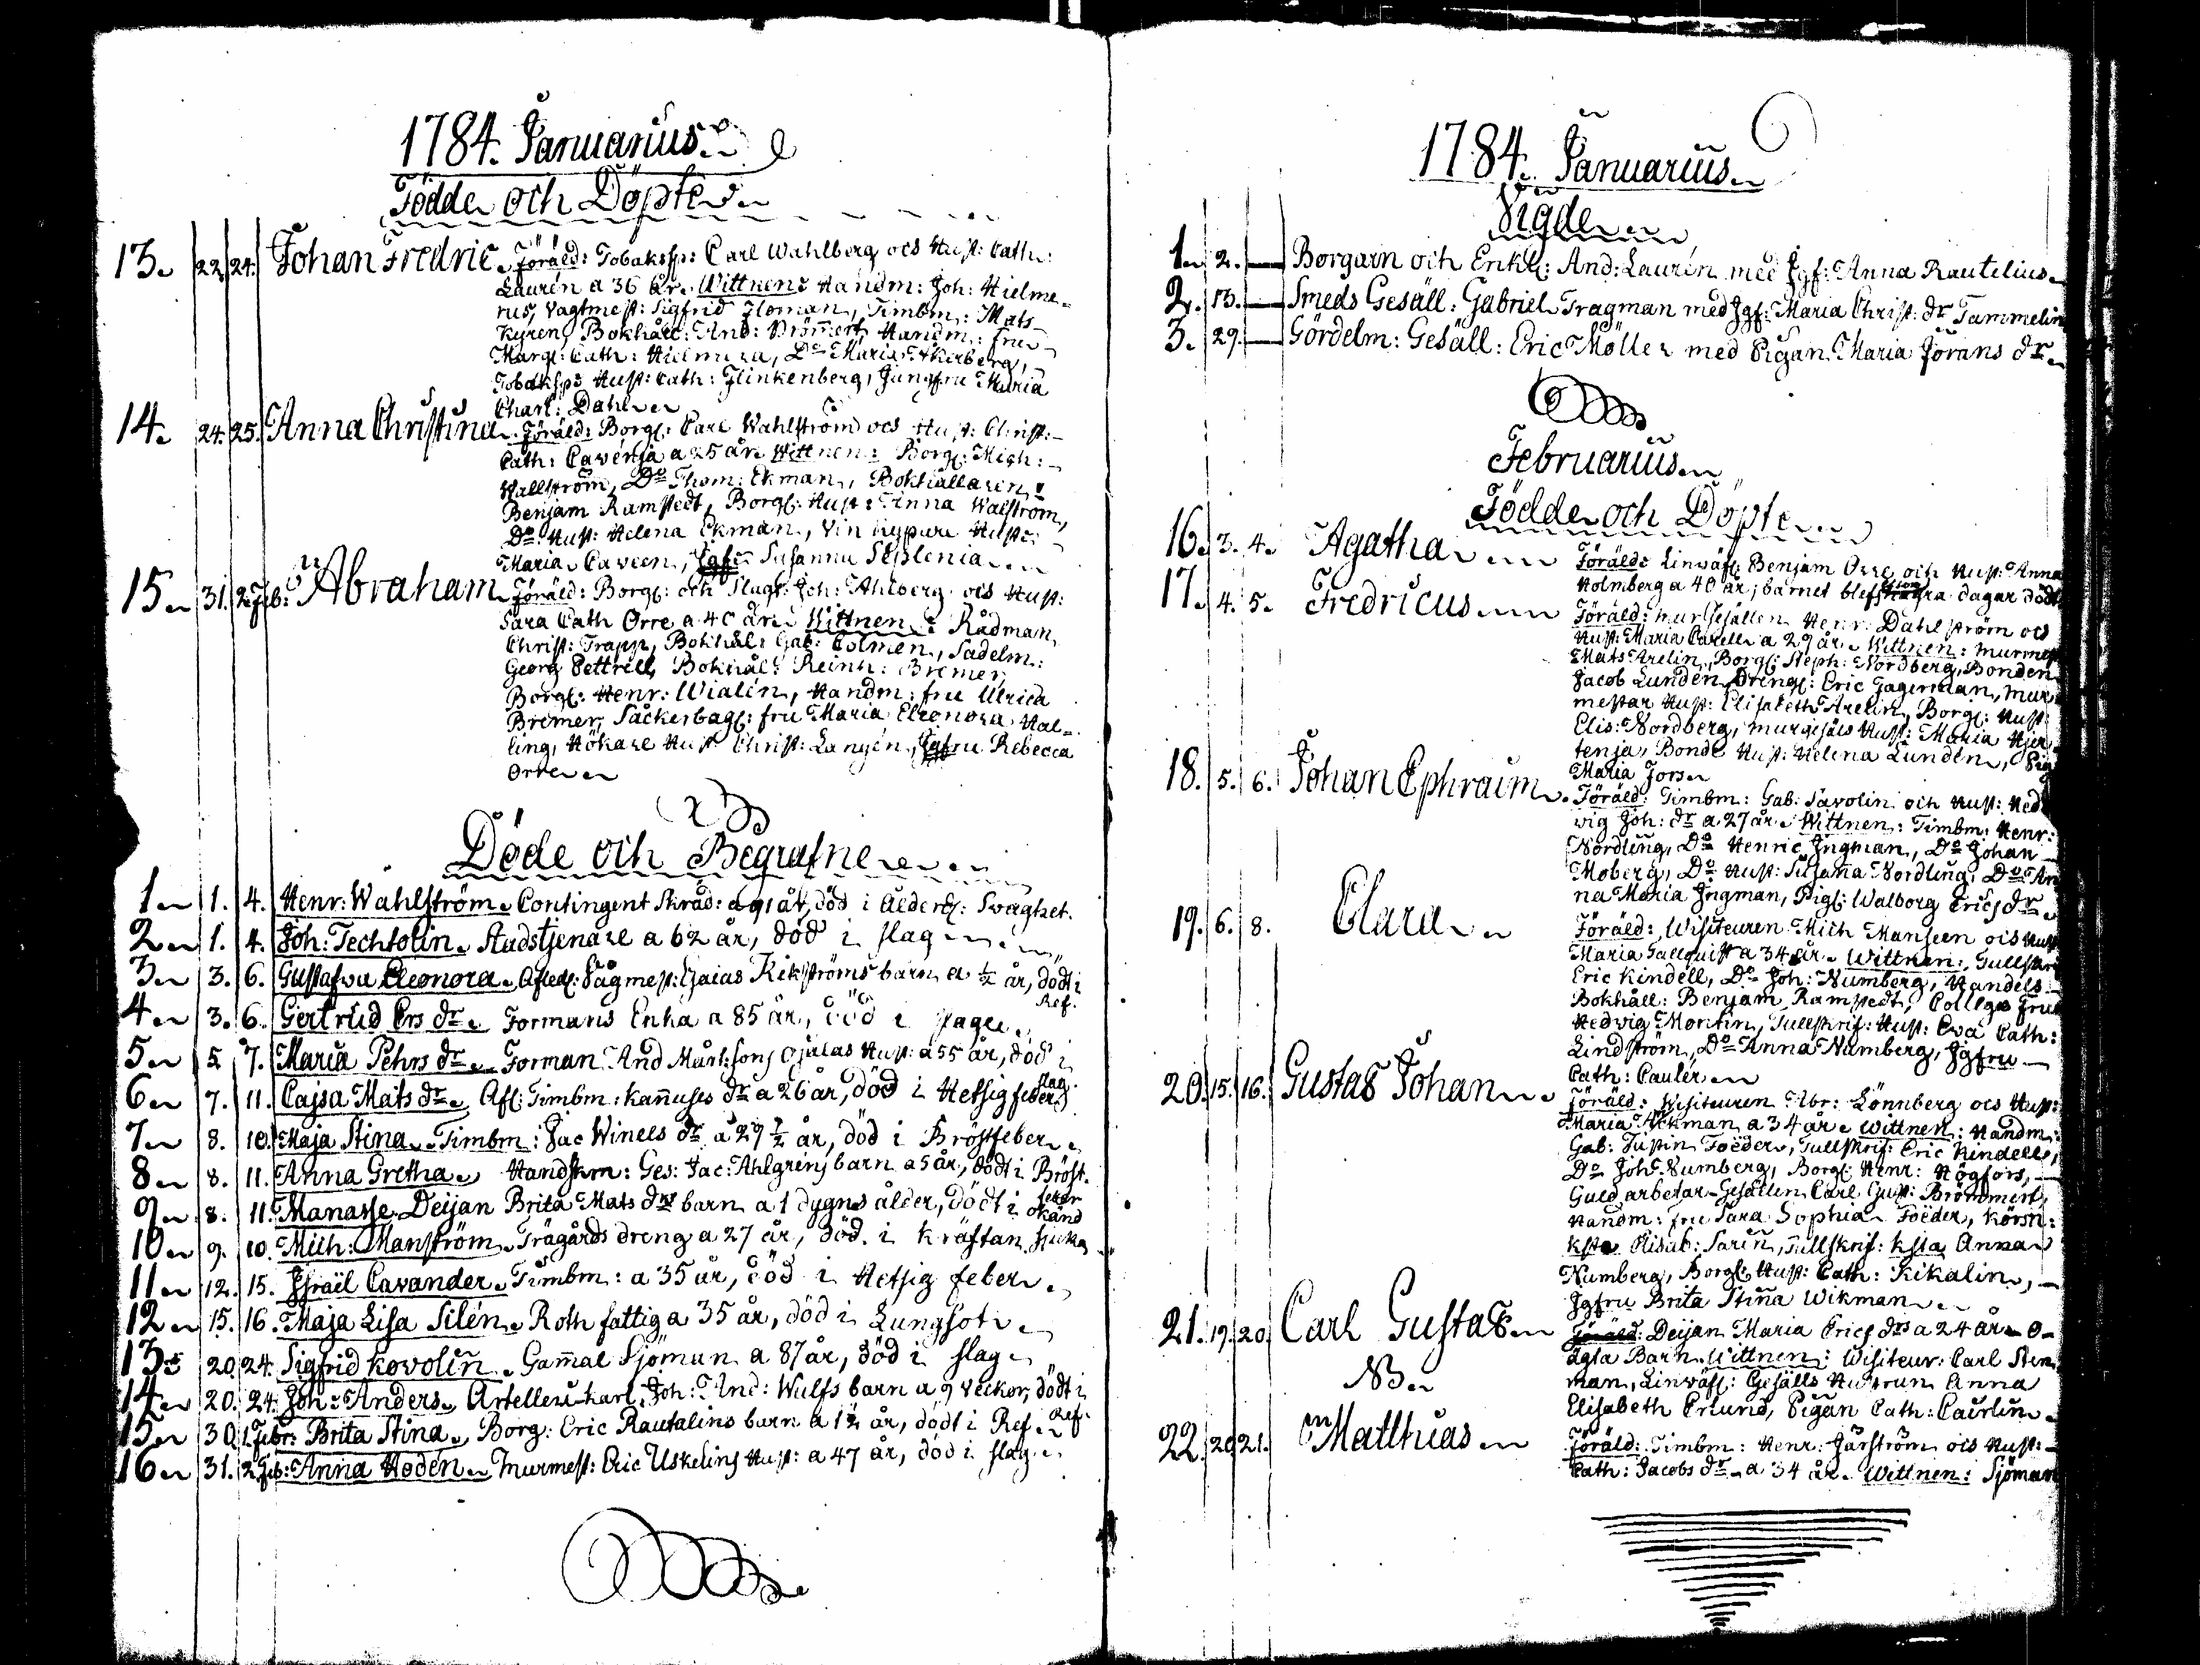 1784. Januarius.
Födde och Döpte
13. 22. 24. Johan Fredric. Föräld: Tobakssp: Carl Wahlberg ocs Hust: Cath:
Laurén a 36 år. Wittnen: Handm: Joh: Hielme-
rus, Vagtmest: Sigfrid Floman, Timbm: Mats
Kyren, Bokhåll: And: Brönnert, Handm: fru
Marg: Cath: Hielmera, Do Maria Åkerberg,
Tobaksps Hust: Cath: Flinkenberg, Jungfru Maria
Charl: Dahl
14. 24. 25. Anna Christina. Föräld: Borg: Carl Wahlström ocs Hust: Christ:
Cath: Cavénja a 25 år. Wittnen: Borg: Mich:
Wallström, Do Thom: Ekman, Bokhållaren
Benjam Ramstedt, Borg: Hust: Anna Walström,
Do Hust: Helena Ekman, Vin Hust:
Maria Caveen, Susanna
15. 31. 2 Feb: Abraham. Föräld: Borg: och Slagt: Joh: Ahlberg ocs Hust:
Sara Cath Orre a 40 år. Wittnen: Rådman
Christ: Trapp, Bokhål: Gab: Colmen, Sadelm:
Georg Pettrell, Bokhål: Reinh: Bremer,
Borg: Henr: Wialén, Handm: fru Ulrica
Bremer, Såckerbag: fru Maria Eleonora Hal-
ling, Hökare Hust Christ: Langén, Jgfru Rebecca
Orre
Döde och Begrafne
1. 1. 4. Henr: Wahlström. Contingent Skräd: a 91 år, död i Ålderd: Svaghet.
2. 1. 4. Joh: Techtolin. Stadstjenare a 62 år, död i slag
3. 3. 6. Gustafva Eleonora. Afled: Sågmest: Esaias Kikströms barn a ½ år, dödt i
Ref.
4. 3. 6. Gertrud Ers dr. Formans Enka a 85 år, död i slag
5. 5. 7. Maria Pehrs dr. Forman And Mårt:sons Ojalas Hust: a 55 år, död i
slag.
6. 7. 11. Cajsa Mats dr. Afl: Timbm: Kan̄uses dr a 26 år, död i Hetsigfeber
7. 8. 10. Maja Stina. Timbm: Jac Winels dr a 29 ½ år, död i Bröstfeber
8. 8. 11. Anna Gretha. Handskm: Ges: Jac: Ahlgrens barn a 5 år, dödt i Bröst.
feber
9. 8. 11. Manasse. Deijan Brita Mats drs barn a 1 dygns ålder, dödt i okänd
sjuka
10. 9. 10. Mich: Manström. Trägårds dreng a 27 år, död i kräftan
11. 12. 15. Israël Cavander. Timbm: a 35 år, död i Hetsig feber
12. 15. 16. Maja Lisa Silén. Roth fattig a 35 år, död i Lungsot
13. 20. 24. Sigfrid Kovolin. Gam̄al Sjöman a 87 år, död i slag
14. 20. 24. Joh: Anders. Artelleri karl. Joh: And: Wulfs barn a 9 Veckor, dödt i
Ref.
15. 30. 1 Febr: Brita Stina. Borg: Eric Rautalins barn a 1½ år, dödt i Ref.
16. 31. 2 Feb: Anna Hodén. Murmest: Eric Uskelins Hust: a 47 år, död i slag
1784. Januarius
Vigde
1. 2. — Borgarn och Enkl: And: Laurén med Jgf: Anna Rautelius
2. 13. — Smeds Gesäll: Gabriel Fragman med Jgf: Maria Christ: dr Tammelin
3. 29. — Gördelm: Gesäll: Eric Möller med Pigan Maria Jörans dr
Februarius
Födde och Döpte
16. 3. 4. Agatha Föräld: Linväf: Benjam Orre och Hust: Anna
Holmberg a 40 år; barnet blef några dagar dödt
17. 4. 5. Fredricus Föräld: Mur Gesällen Henr: Dahlström ocs
Hust: Maria Carelle a 29 år. Wittnen: Murmest
Mats Arelin, Borg: Steph: Nordberg, Bonden
Jacob Lunden, Dreng: Eric Gagerman, Mur
mestar Hust: Elisabeth Arelin, Borg: Hust:
Elis: Nordberg, Murgesäls Hust: Maria Hjer
tenja, Bonde Hust: Helena Lunden, Pig
Maria Jors
18. 5. 6. Johan Ephraim. Föräld: Timbm: Gab: Savolin och Hust: Hed
vig Joh: dr a 27 år. Wittnen: Timbm: Henr:
Nordling, Do Henric Ingman, Do Johan
Moberg, Do Hust: Susana Nordling, Do An
na Maria Ingman, Pig: Walborg Erics dr
19. 6. 8. Clara Föräld: Wisiteuren Mich Manseen ocs Hust
Maria Gallquist a 34 år. Wittnen: Tullskri
Eric Kindell, Do Joh: Numberg, Handels
Bokhåll: Benjam Ramstedt, Collega Fru
Hedvig Montin, Tullskrif: Hust: Eva Cath:
Lindström, Do Anna Numberg, Jgfru
Cath: Caulér
20. 15. 16. Gustaf Johan Föräld: Wisiteuren Abr: Lönnberg ocs Hust:
Maria Åckman a 34 år. Wittnen: Handm:
Gab: Justin Foëder, Tullskrif: Eric Kindell,
Do Joh: Numberg, Borg: Henr: Högfors,
Guld arbetar-Gesällen Carl Gust: Brönnert,
Handm: fru Sara Sophia Foëder, Körsn:
Ksta Elisab: Sarén, Tullskrif: Ksta Anna
Numberg, Borg: Hust: Cath: Kikalin,
Jgfru Brita Stina Wikman
21. 19. 20. Carl Gustaf Föräld: Deijan Maria Erics drs a 24 år o-
NB ägta Barn. Wittnen: Wisiteur: Carl Sten
man, Linväf: Gesälls Hustrun Anna
Elisabeth Erlund, Pigan Cath: Caurlin
22. 20. 21. Matthias Föräld: Timbm: Henr: Järström ocs Hust:
Cath: Jacobs dr a 34 år. Wittnen: Sjöman